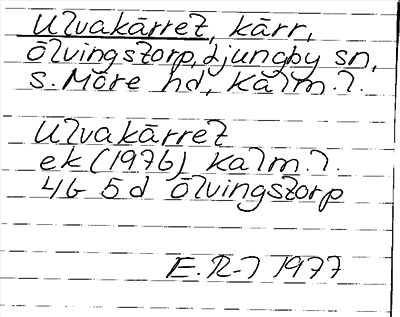 Ulvakärret, kärr,
Ölvingstorp, Ljungby sn,
S. Möre hd, Kalm. l.
Ulvakärret
ek (1976) Kalm. l.
4G 5d Ölvingstorp
E. R-7 1977